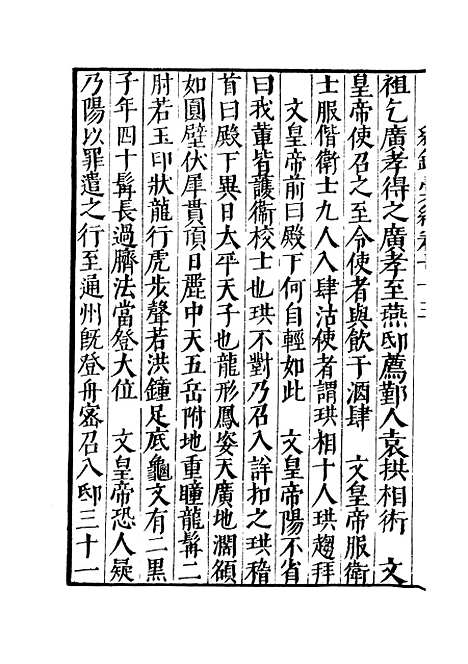 祖乞廣孝得之廣孝至燕邸薦鄞人袁拱相術　文
皇帝使召之至令使者與飲于酒肆　文皇帝服衛
士服偕衛士九人入肆沽使者謂珙相十人珙趨拜
文皇帝前曰殿下何自輕如此　文皇帝陽不省
曰我軰皆護衞校士也珙不對乃召入詳扣之珙稽
首曰殿下異日太平天子也龍形鳳姿天廣地濶額
如圓璧伏犀貫頂日麗中天五岳附地重瞳龍髯二
肘若玉印狀龍行虎步聲若洪鐘足底龜文有二黑
子年四十髯長過臍法當登大位　文皇帝恐人疑
乃陽以罪遣之行至通州旣登舟宻召入邸三十一